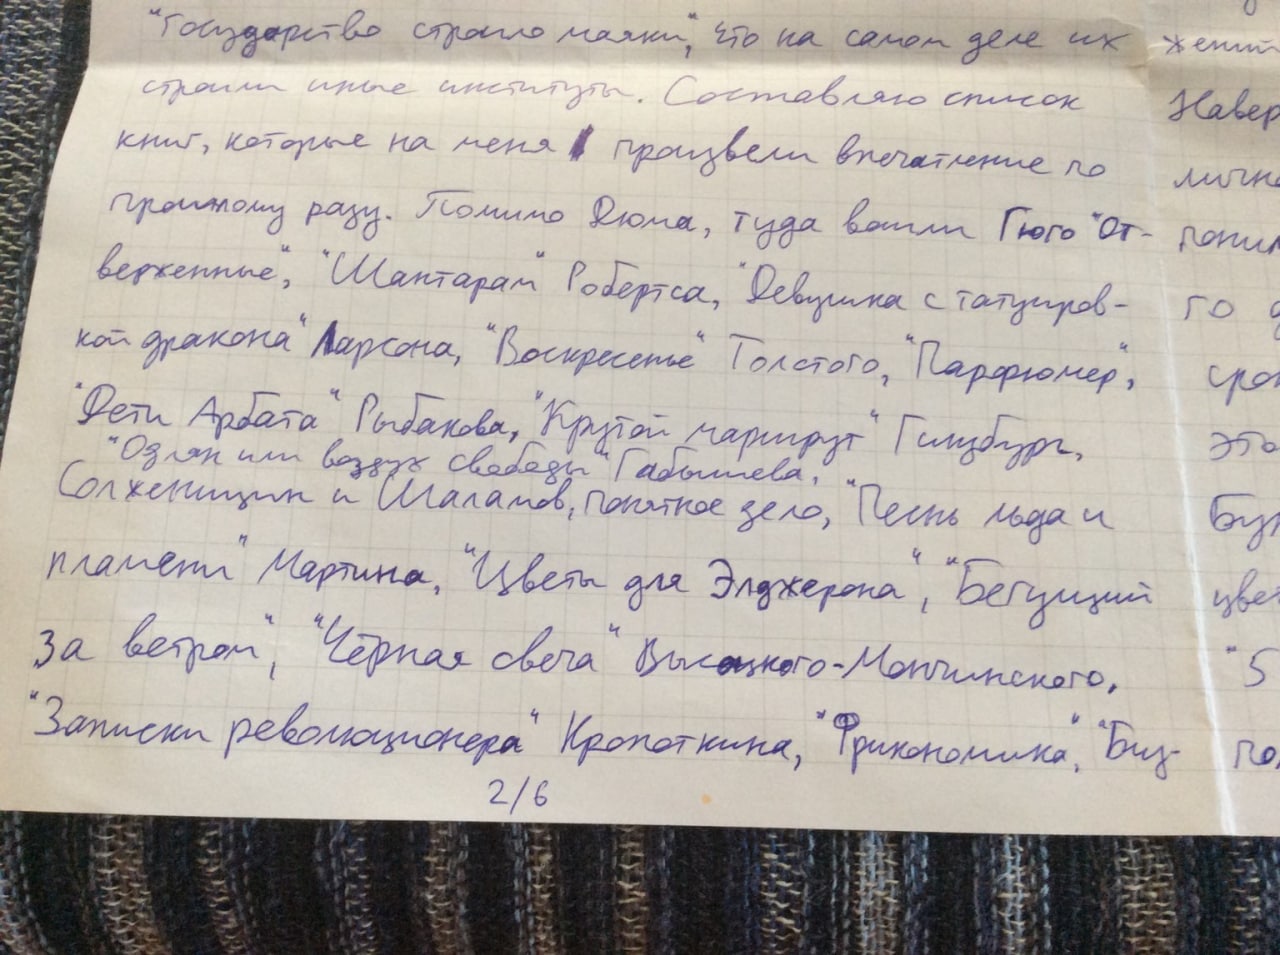 "Государство строило маяки", что на самом деле их
строили иные институты. Составляю список
книг, которые на меня произвели впечатление по
прошлому разу. Помимо Дюма, туда вошли Гюго "От-
верженные", "Шантарам" Робертса, "Девушка с татуиров-
кой дракона" Ларсона, "Воскресенье" Толстого, "Парфюмер",
"Дети Арбата" Рыбакова, "Крутой маршрут" Гинзбург,
"Одлян или воздух свободы" Габышева,
Солженицин и Шаламов, понятное дело, "Песнь льда и
пламени" Мартина, "Цветы для Элджерона", "Бегущий
за ветром", "Чёрная свеча" Высоцкого-Мончинского,
"Записки революционера" Кропоткина, "Фрикономика", "Биз-
2/6
жений
Навер
лично
го
это
цвет
"5